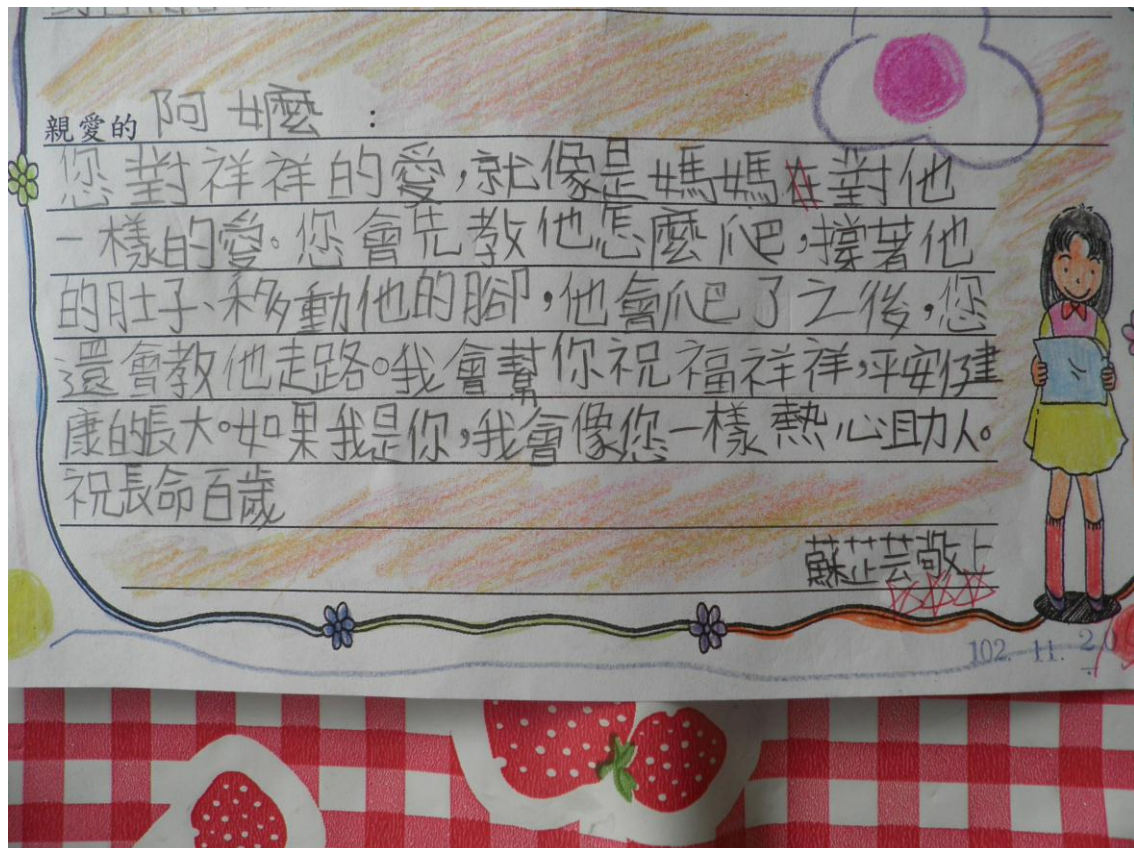 親愛的 阿嬤：
您對祥祥的愛，就像是媽媽在對他
一樣的愛。您會先教他怎麼爬，撐著他
的肚子、移動他的腳，他會爬了之後，您
還會教他走路。我會幫你祝福祥祥，平安健
康的長大。如果我是你，我會像您一樣熱心助人。
祝長命百歲
蘇芷芸敬上
102. 11. 20